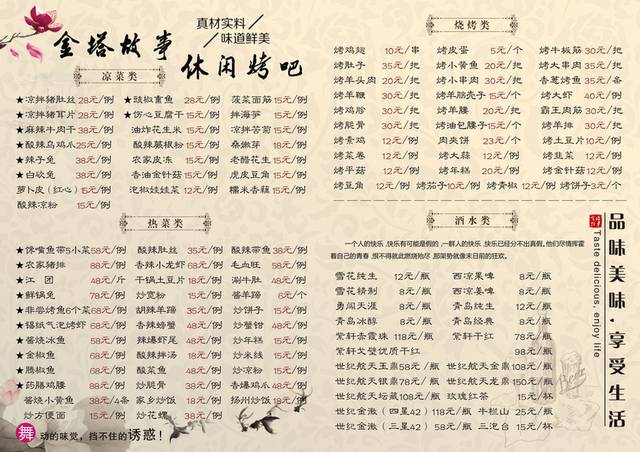 金塔故事
真材实料
味道鲜美
休闲烤吧
凉菜类
★凉拌猪肚丝 28元/例 ★豉椒禽鱼 28元/例 菠菜面筋 15元/例
★凉拌猪耳片 28元/例 ★伤心豆腐干 15元/例 拌海笋 15元/例
★麻辣牛肉干 38元/例 油炸花生米 15元/例 凉拌苦菊 15元/例
★酸辣乌鸡爪 25元/例 酸辣蕨根粉 15元/例 桑嫩芽 18元/例
★辣子兔 38元/例 农家皮冻 15元/例 老醋花生 15元/例
★白砍兔 38元/例 香油金针菇 15元/例 虎皮豆角 15元/例
萝卜皮（红心） 15元/例 泡椒娃娃菜 12元/例 糯米香藕 15元/例
酸辣凉粉 15元/例
热菜类
★馋嘴鱼带5小菜 58元/例 酸辣肚丝 35元/例 酸辣带鱼 38元/例
★农家猪排 88元/例 香辣小龙虾 68元/例 毛血旺 58元/例
★江团 48元/斤 干锅土豆片 18元/例 涮牛肚 48元/例
★鲜锅兔 78元/例 炒宽粉 15元/例 酱羊蹄 6元/个
★非尝烤鱼6个菜 68元/例 胡辣羊蹄 35元/例 炒饼子 15元/例
★锡纸气泡烤虾 68元/例 香辣螃蟹 48元/例 炒蟹钳 48元/例
★酱烧冰鱼 58元/例 辣爆虾尾 48元/例 炒年糕 15元/例
★金椒鱼 68元/例 酸辣拌汤 18元/例 炒米线 15元/例
★腾椒鱼 58元/例 酸菜鱼 48元/例 炒凉粉 15元/例
★药膳鸡腰 88元/例 炒腿骨 38元/例 香爆鸡爪 48元/例
酱烧小黄鱼 4元/条 家乡炒饭 18元/例 扬州炒饭 18元/例
炒方便面 15元/例 炒花螺 38元/例
舞动的味觉，挡不住的诱惑！
烧烤类
烤鸡翅 10元/串 烤皮蛋 5元/个 烤牛板筋 30元/把
烤肚子 35元/把 烤小黄鱼 20元/把 烤小牛肉 30元/把
烤羊头肉 20元/把 烤小串肉 30元/把 香葱烤鱼 35元/条
烤羊鞭 30元/把 烤羊胎壳子 15元/个 烤大虾 40元/例
烤鸡胗 30元/把 烤羊腰 20元/把 霸王肉筋 30元/把
烤腿骨 30元/把 烤油包腰子 15元/个 烤羊排 30元/把
烤鸡尖 32元/把 肉夹饼 23元/个 烤土豆片 10元/例
烤菜卷 12元/例 烤大蒜 12元/例 烤韭菜 12元/例
烤平菇 12元/例 烤年糕 20元/例 烤金针菇 12元/例
烤豆角 12元/例 烤茄子 10元/例 烤青椒 12元/例 烤饼子 3元/个
酒水类
一个人的快乐，快乐有可能是假的，一群人的快乐，快乐已经分不出真假，他们尽情挥霍
着自己的青春，恨不得就此燃烧殆尽，那架势就像末日前的狂欢。
雪花纯生 12元/瓶 西凉果啤 8元/瓶
雪花精制 8元/瓶 西凉姜啤 8元/瓶
勇闯天涯 8元/瓶 青岛纯生 12元/瓶
青岛冰醇 8元/瓶 青岛经典 8元/瓶
紫轩赤霞珠 118元/瓶 紫轩干红 78元/瓶
紫轩戈壁优质干红 98元/瓶
世纪航天玉鼎 58元/瓶 世纪航天金鼎 108元/瓶
世纪航天银鼎 78元/瓶 世纪航天龙鼎 150元/瓶
世纪航天坛藏 108元/瓶 玫瑰红茶 15元/杯
世纪金徽（四星42） 118元/瓶 牛栏山 25元/瓶
世纪金徽（三星42） 58元/瓶 三泡台 15元/杯
品味美味·享受生活
Taste delicious, enjoy life
Beer